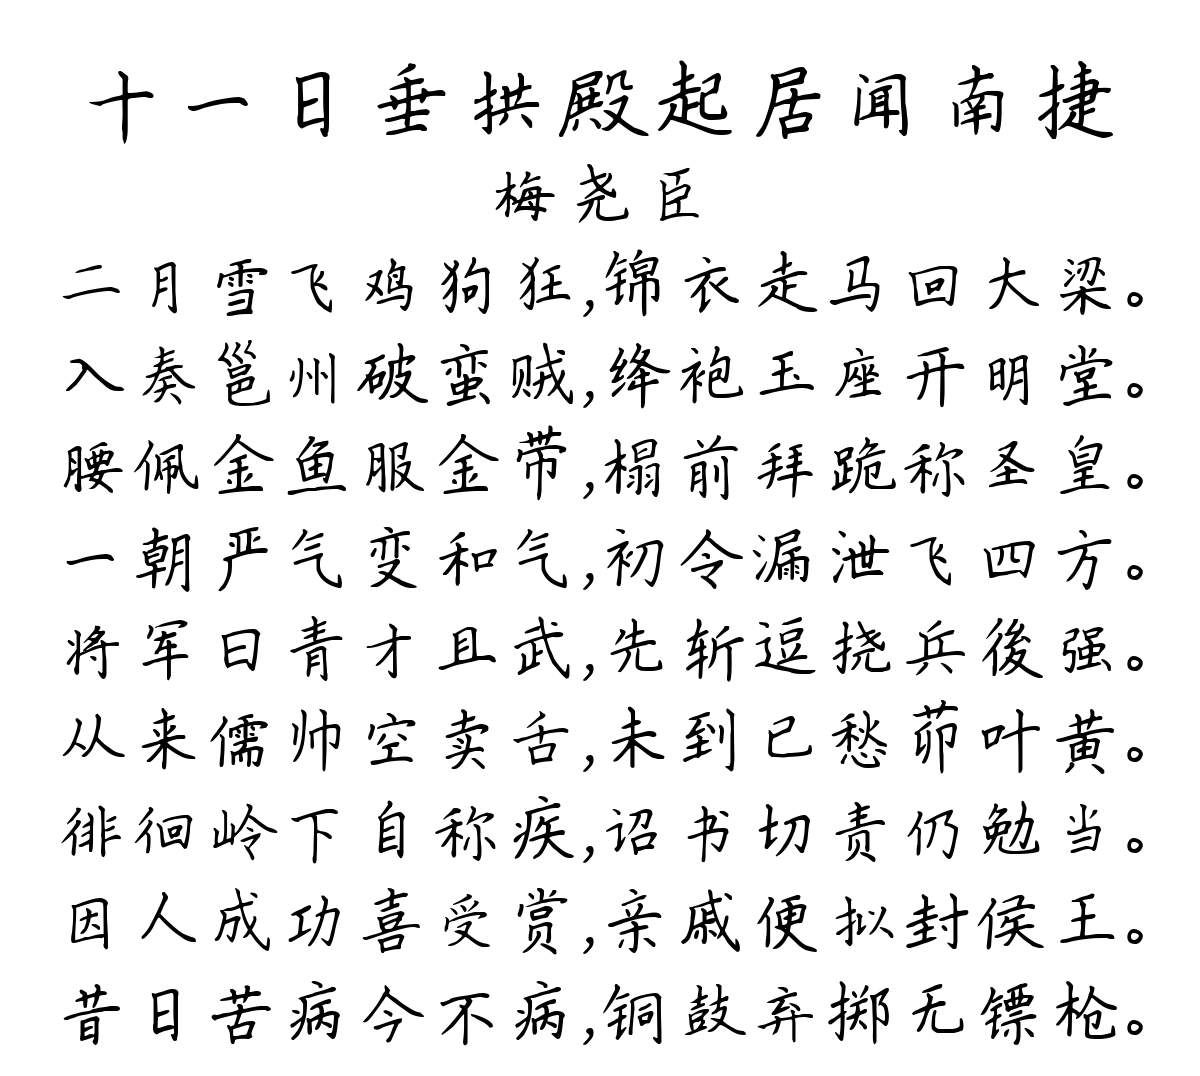 十一日垂拱殿起居闻南捷
梅尧臣
二月雪飞鸡狗狂,锦衣走马回大梁。
入奏邕州破蛮贼,绛袍玉座开明堂。
腰佩金鱼服金带,榻前拜跪称圣皇。
一朝严气变和气,初令漏泄飞四方。
将军曰青才且武,先斩逗挠兵後强。
从来儒帅空卖舌,未到已愁茆叶黄。
徘徊岭下自称疾,诏书切责仍勉当。
因人成功喜受赏,亲戚便拟封侯王。
昔日苦病今不病,铜鼓弃掷无镖枪。